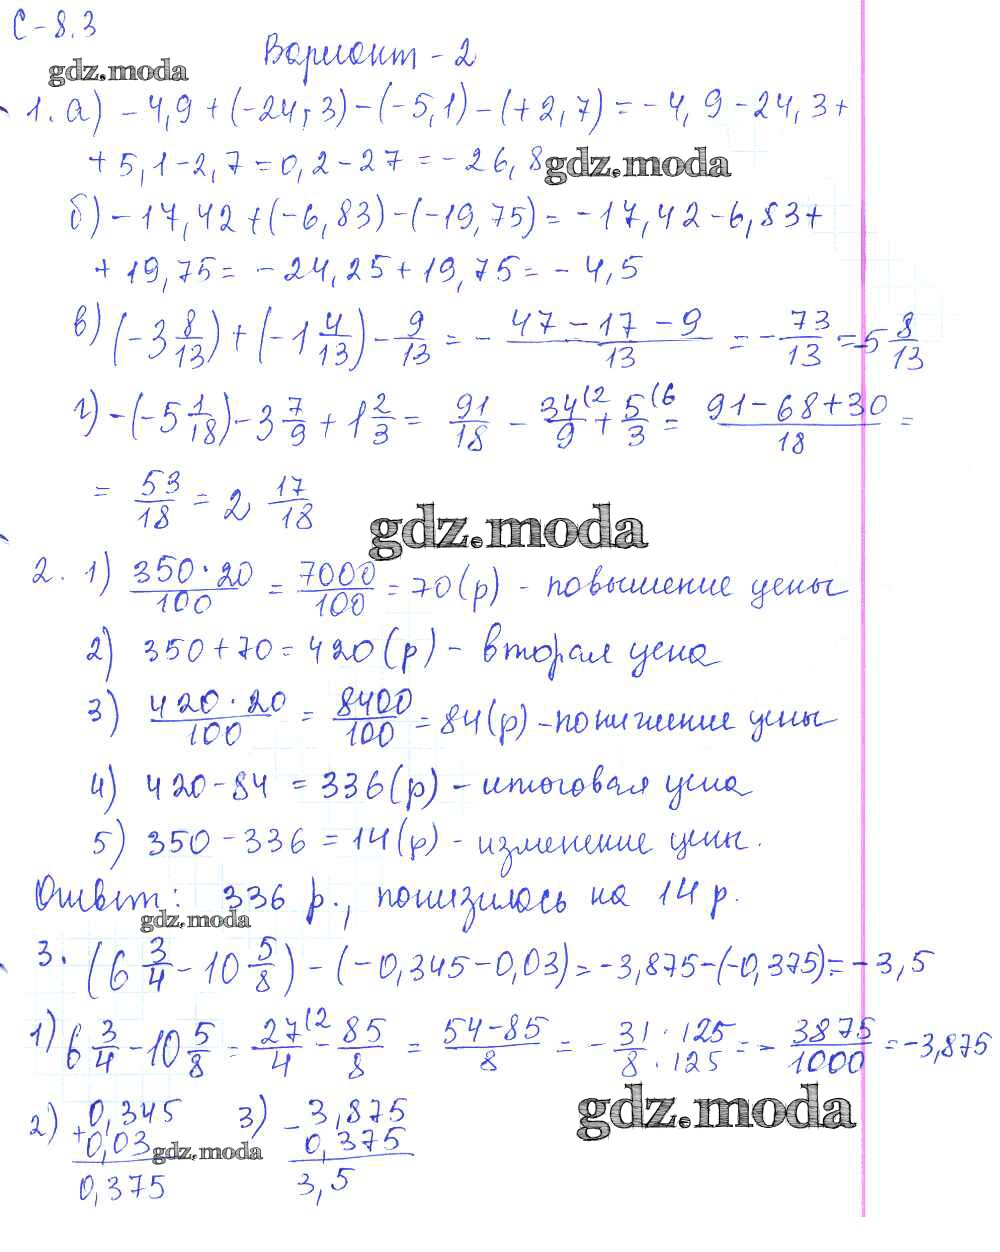 С-8.3
Вариант - 2
gdz.moda
1. а) - 4,9 + (-24,3) - (-5,1) - (+2,7) = - 4,9 - 24,3 +
+ 5,1 - 2,7 = 0,2 - 27 = - 26,8
gdz.moda
б) - 17,42 + (-6,83) - (-19,75) = - 17,42 - 6,83 +
+ 19,75 = - 24,25 + 19,75 = - 4,5
в) (-3 8/13) + (-1 4/13) - 9/13 = - (47 - 17 - 9)/13 = - 73/13 = -5 8/13
г) - (-5 1/18) - 3 7/9 + 1 2/3 = 91/18 - 34(2/9 + 5(6/3 = (91 - 68 + 30)/18 =
= 53/18 = 2 17/18
gdz.moda
2. 1) (350 · 20)/100 = 7000/100 = 70 (р) - повышение цены
2) 350 + 70 = 420 (р) - вторая цена
3) (420 · 20)/100 = 8400/100 = 84 (р) - понижение цены
4) 420 - 84 = 336 (р) - итоговая цена
5) 350 - 336 = 14 (р) - изменение цены.
Ответ: 336 р., понизилась на 14 р.
gdz.moda
3. (6 3/4 - 10 5/8) - (-0,345 - 0,03) = - 3,875 - (-0,375) = - 3,5
1) 6 3/4 - 10 5/8 = 27(2/4 - 85/8 = (54 - 85)/8 = - (31 · 125)/(8 · 125) = - 3875/1000 = -3,875
gdz.moda
2) 0,345 3) - 3,875
+ 0,03 0,375
gdz.moda
0,375 3,5